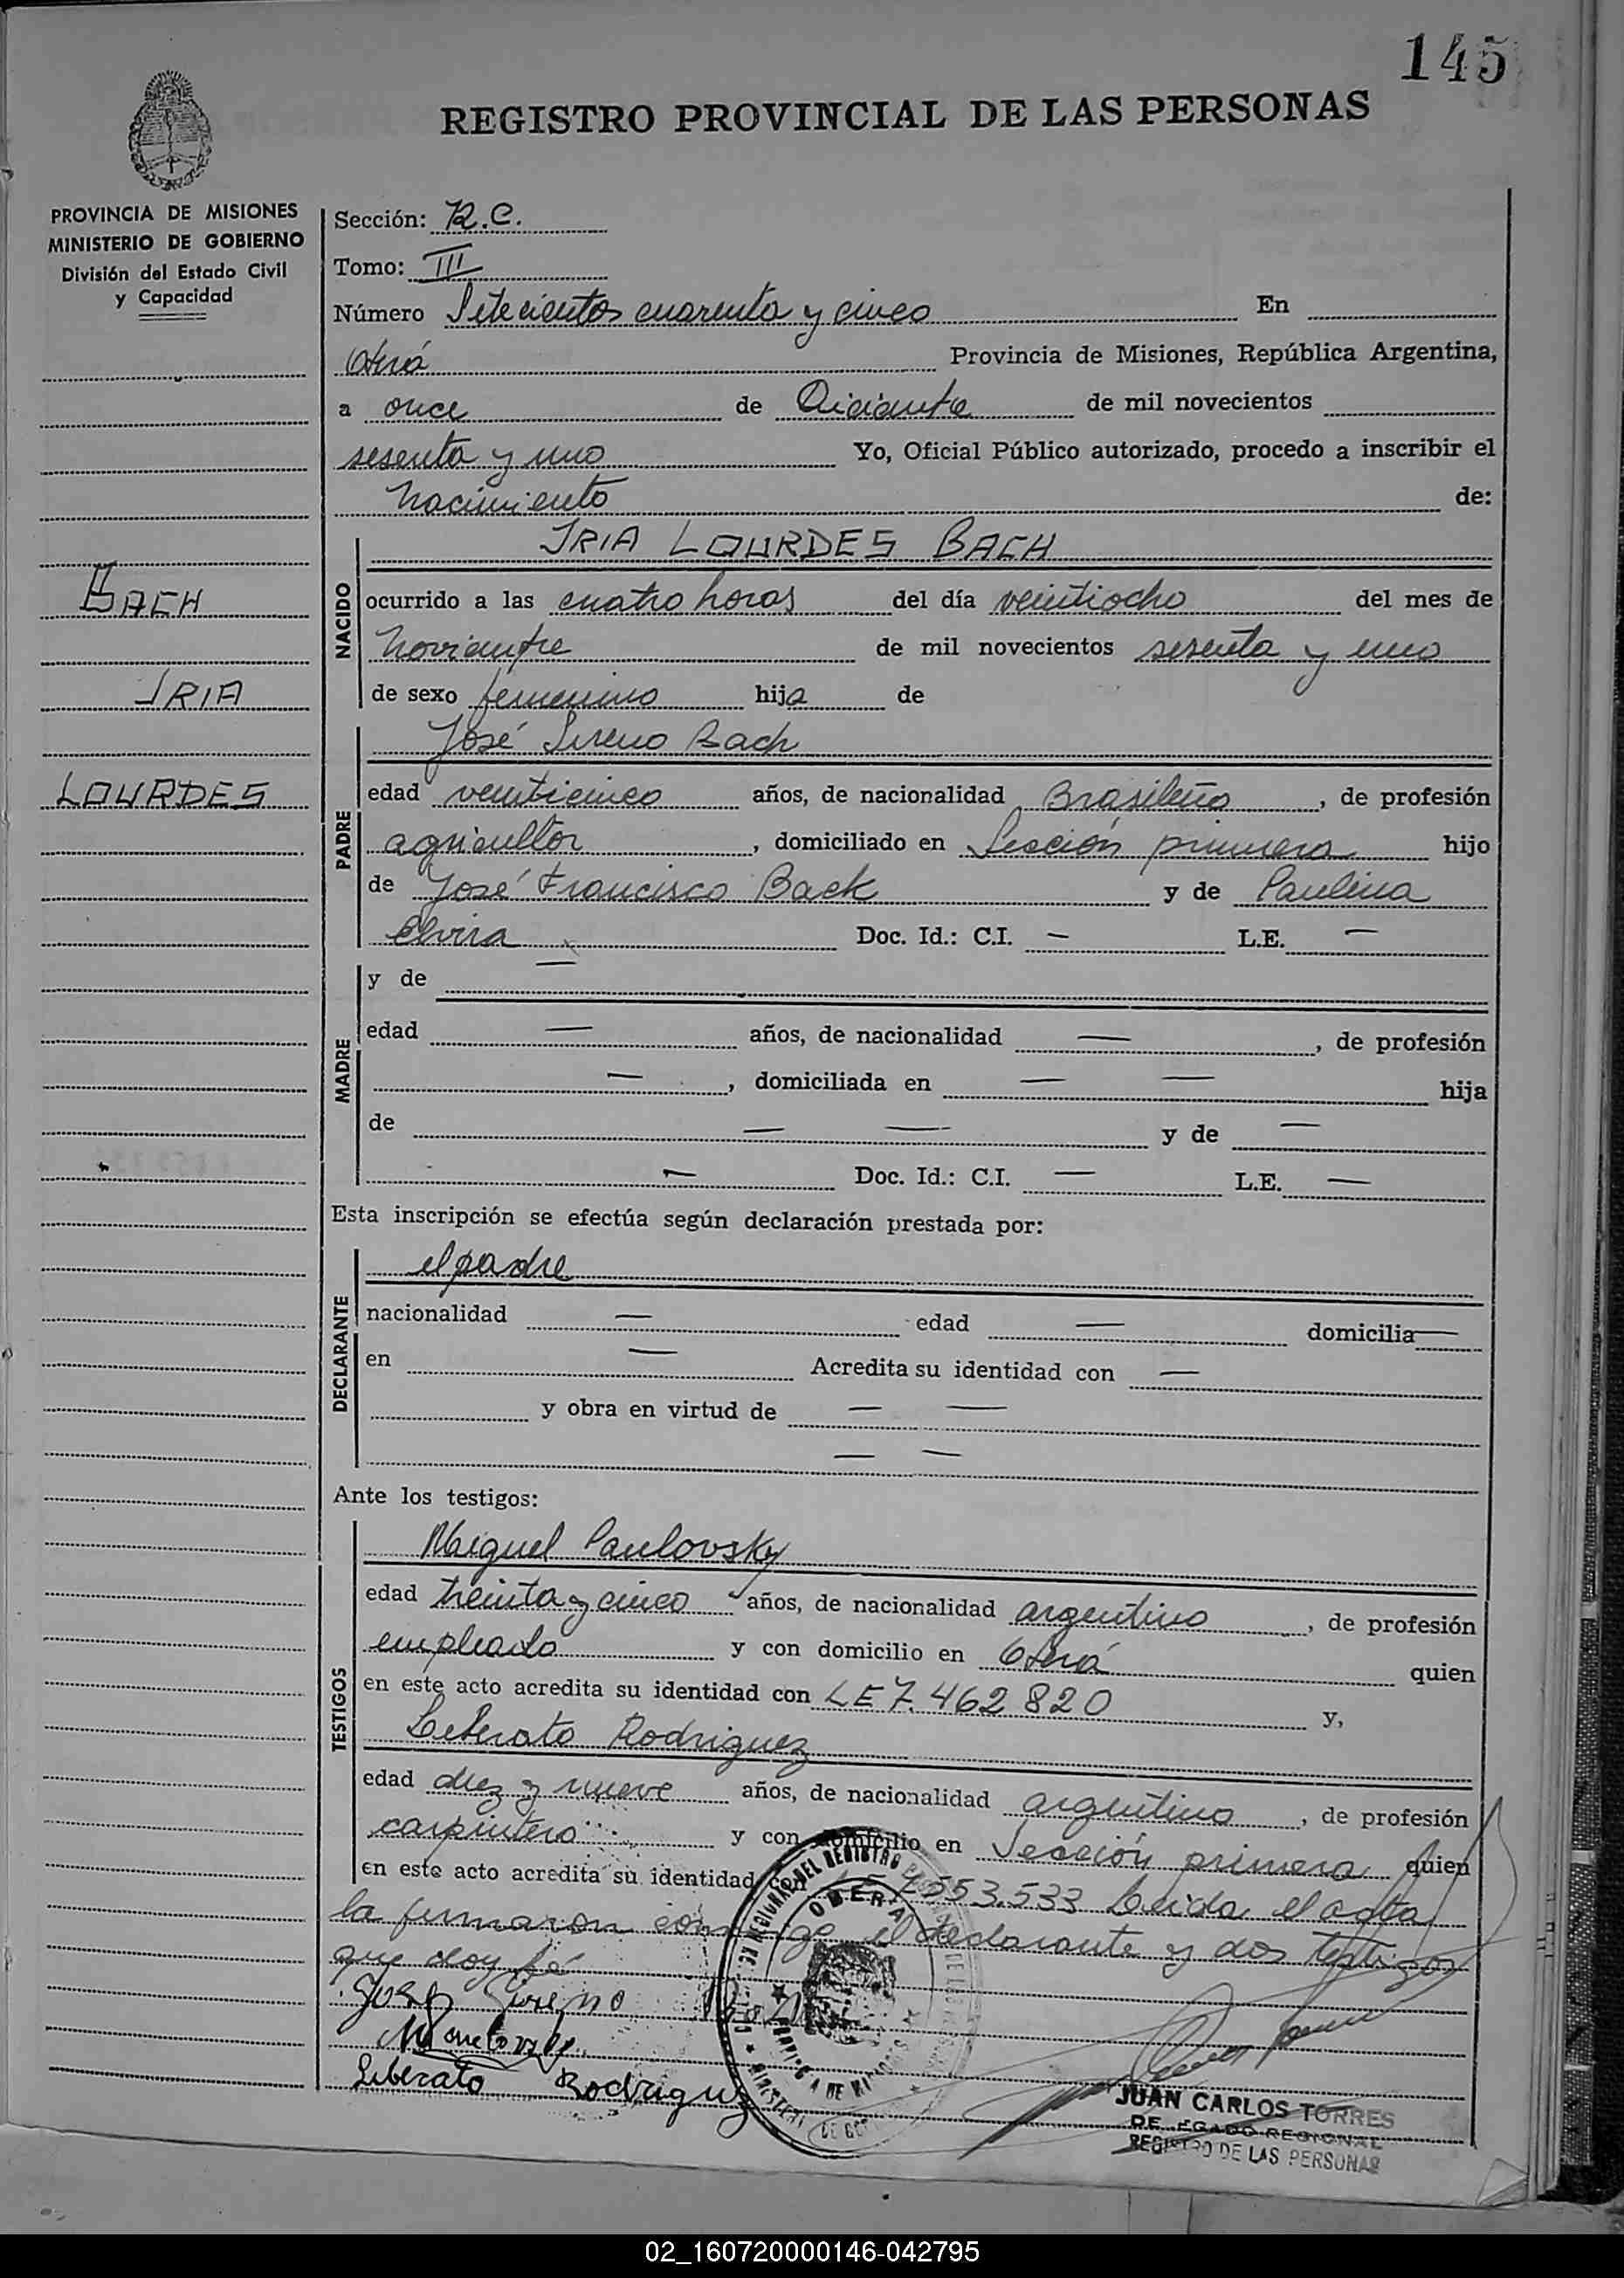 145
REGISTRO PROVINCIAL DE LAS PERSONAS
PROVINCIA DE MISIONES
MINISTERIO DE GOBIERNO
División del Estado Civil
y Capacidad
BACH
IRIA
LOURDES
Sección: R.C.
Tomo: III
Número Setecientos cuarenta y cinco En
Oberá Provincia de Misiones, República Argentina,
a once de Diciembre de mil novecientos
sesenta y uno Yo, Oficial Público autorizado, procedo a inscribir el
Nacimiento de:
NACIDO
IRIA LOURDES BACH
ocurrido a las cuatro horas del día veintiocho del mes de
Noviembre de mil novecientos sesenta y uno
de sexo femenino hija de
PADRE
José Sireno Bach
edad veinticinco años, de nacionalidad Brasileño, de profesión
agricultor, domiciliado en Sección primera hijo
de José Francisco Back y de Paulina
Elvira Doc. Id.: C.I. — L.E. —
MADRE
y de —
edad — años, de nacionalidad —, de profesión
—, domiciliada en — — hija
de — — y de —
— Doc. Id.: C.I. — L.E. —
Esta inscripción se efectúa según declaración prestada por:
DECLARANTE
el padre
nacionalidad — edad — domicilia—
en — Acredita su identidad con —
y obra en virtud de — —
— —
Ante los testigos:
TESTIGOS
Miguel Paulovsky
edad treinta y cinco años, de nacionalidad argentino, de profesión
empleado y con domicilio en Oberá quien
en este acto acredita su identidad con LE 7.462820 y,
Liberato Rodriguez
edad diez y nueve años, de nacionalidad argentino, de profesión
carpintero y con domicilio en Sección primera quien
en este acto acredita su identidad con 7553.533 Leida el acta
la firmaron conmigo el declarante y dos testigos
que doy fé
José Sireno Bach
Liberato Rodriguez
OBERA
JUAN CARLOS TORRES
DELEGADO REGIONAL
REGISTRO DE LAS PERSONAS
02_160720000146-042795